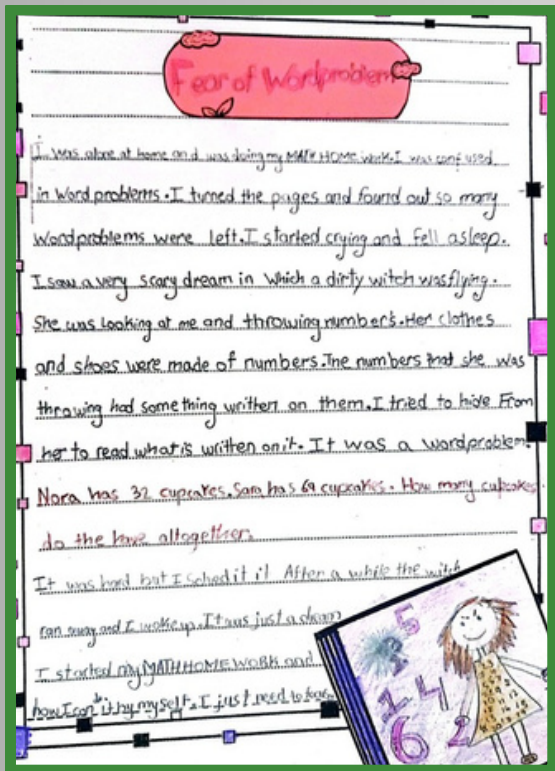 Fear of Wordproblem
I was alone at home and was doing my MATH HOME work. I was confused
in Word problems. I turned the pages and found out so many
Wordproblems were left. I started crying and fell asleep.
I saw a very scary dream in which a dirty witch was flying.
She was looking at me and throwing number's. Her clothes
and shoes were made of numbers. The numbers that she was
throwing had something written on them. I tried to hide From
her to read what is written on it. It was a wordproblem.
Nora has 32 cupcakes. Sara has 69 cupcakes. How many cupcakes
do the have altogether.
It was hard but I it After a while the witch
ran away and I woke up. It was just a dream
I started my MATH HOME WORK and
how I can it by my self. I just need to
5
14
6 2